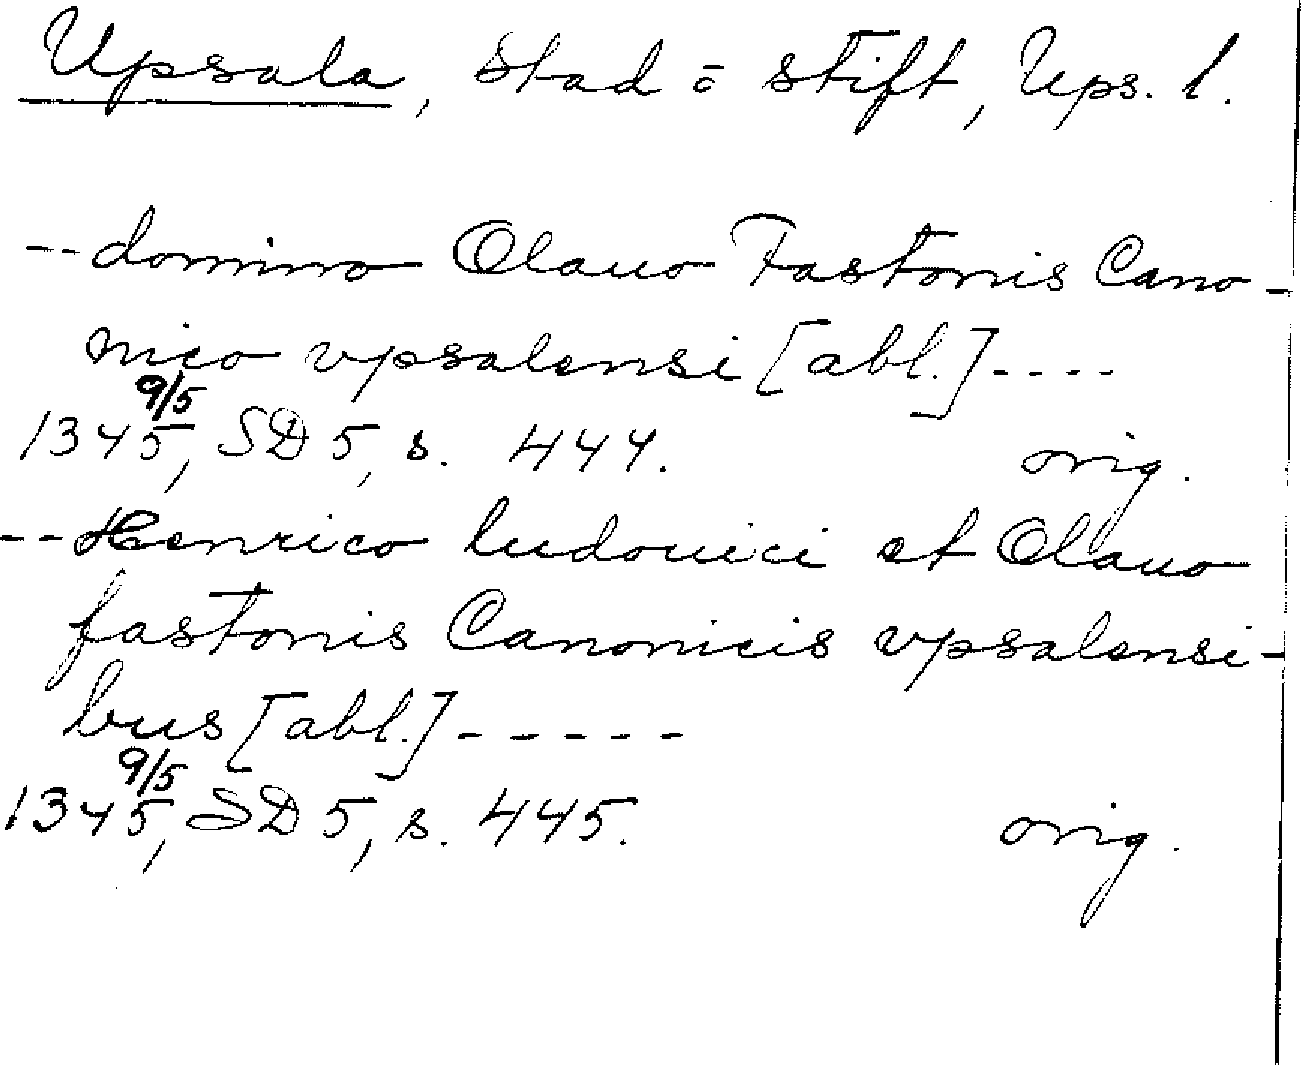 Upsala, stad o stift, Ups. l.
-- domino Olauo Fastonis Cano-
nico vpsalensi [abl.] ----
9/5
1345, SD 5, s. 444. orig.
-- Henrico ludouici et Olauo
fastonis Canonicis vpsalensi-
bus [abl.] -----
9/5
1345, SD 5, s. 445. orig.